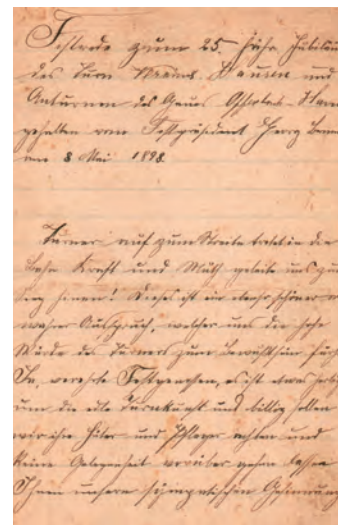 Festrede zum 25. jähr. Jubiläu
des Turn Vereins Hausen und
Anturnen des Gaues Offenbach-Hanau
gehalten vom Festpräsident Georg
am 8 Mai 1898
Turner auf zum Streite tretet in die
Bahn Kraft und Muth geleite uns zum
Sieg hinan! Dieses ist ein ebenso schöner
wahrer Ausspruch, welcher uns die hohe
Würde des Turners zum Bewußtsein führt
Ja, verehrte Festgenossen, es ist etwas
um die edle Turnkunst und billig sollen
wir ihre Hüter und Pfleger achten und
keine Gelegenheit vorüber gehen lassen
Ihnen unsere sympatischen Gesinnungen